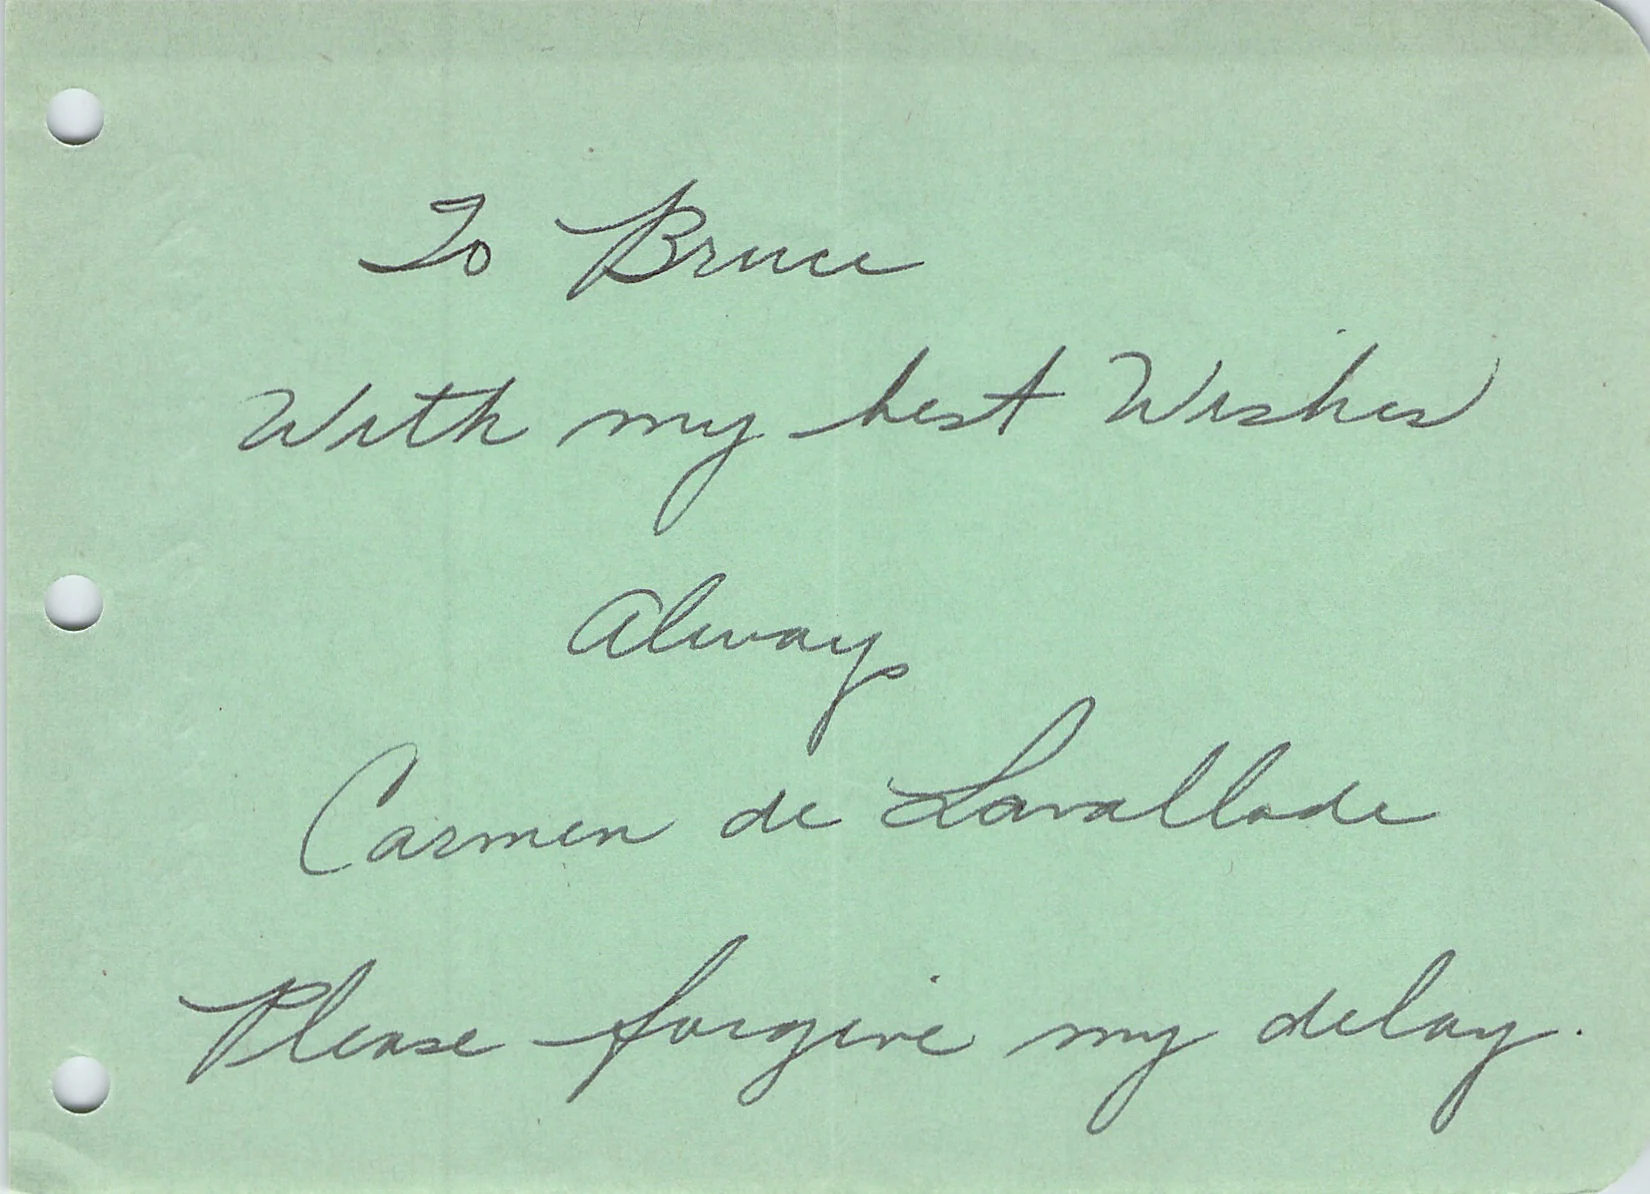 To Bruce
With my best Wishes
Always
Carmen de Lavallade
Please forgive my delay.